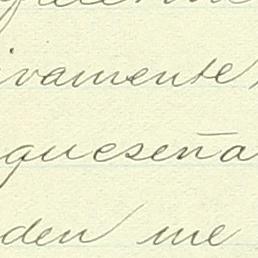 ivamente
gueseña
den me